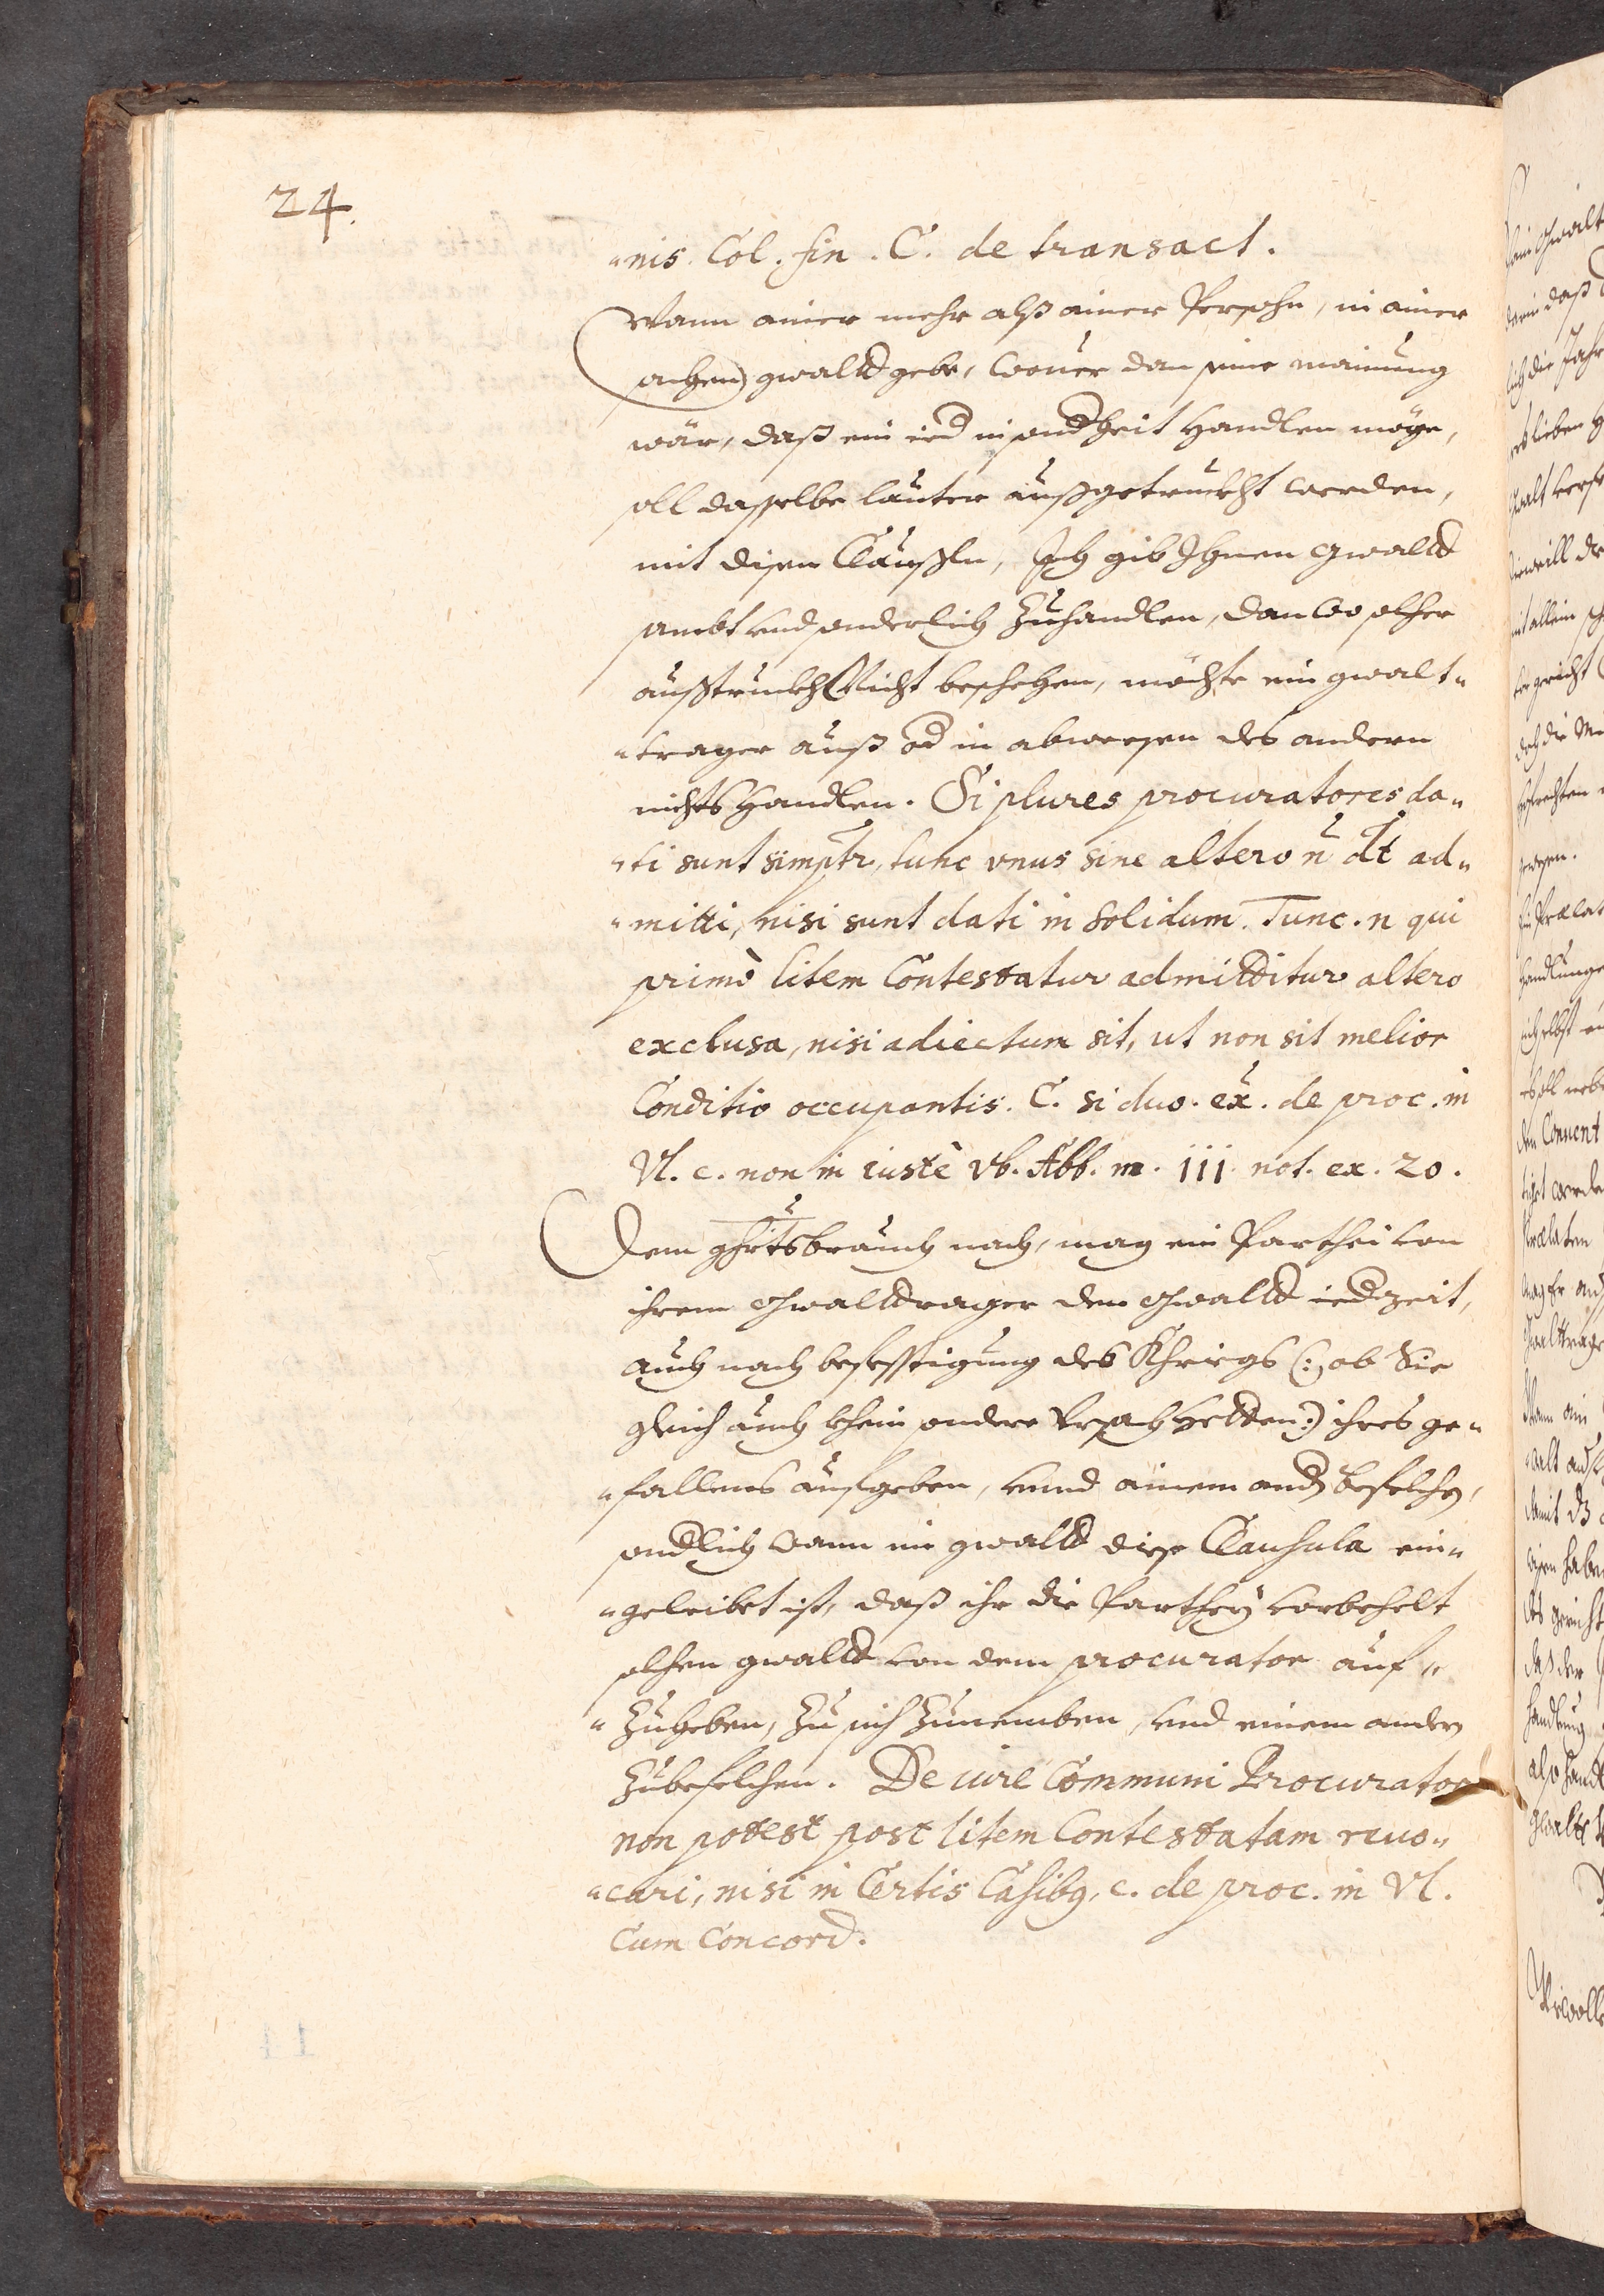 24.
„nis. Col. fin. C. de transact.
Wann ainer mehr alß ainer Persohn, in ainer
sachen gwalld gebe, wouer dan seine mainung
wär, daß ein ied insondheit handlen möge,
soll dasselbe lauter außgetruckht werden,
mit disen Claußln, Ich gib Ihnen gwalld
sambt vnd sonderlich zuhandlen, dan wo solcher
außtruckh Nicht beschehen, möchte ein gwalt„
„trager auß od in abwesen des andern
nichts handlen. Si plures procuratores da„
„ti sunt simpltr, tunc vnus sine altero n̄ dt ad„
„mitti, nisi sunt dati in solidum. Tunc. n qui
primò litem Contestatur admittitur altero
exclusa, nisi adiectum sit, ut non sit melior
Conditio occupantis. C. si duo. ex. de proc. in
Vl. c. non in iustè vb. Abb. m. iij. not. ex. 20.
Dem ghrtsbrauch nach, mag ein Parthei von
ihrem Gwalldrager den Gwalld iedzeit,
auch nach befesstigung des Khriegs (: ob Sie
gleich auch khein andere Vrsach hetten :) ihres ge„
„fallens aufgeben, vnnd ainem andn befelchn,
sondlich wann im gwalld diese Clausula ein„
„geleibet ist, daß ihr die Parthey vorbehelt
solhen gwalld von dem procurator auf„
„zuheben, zu sich zunemben, vnd einem andern
zubefelchen. De iure Communi Procurator
non potest post litem Contestatam reuo„
„cari, nisi in Certis Casibq, c. de proc. in Vl.
Cum Concord.